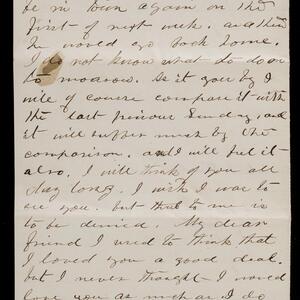 be in town again on the
first of next week. and then
he would go back home.
I do not know what to do on
to morrow. As it goes by I
will of course compare it with
the last Sunday, and
it will suffer much by the
comparison. and I will feel it
also. I will think of you all
day long. I wish I was to
see you. but that to me is
to be denied. My dear
friend I used to think that
I loved you a good deal.
but I never thought I would
love you as much as I do